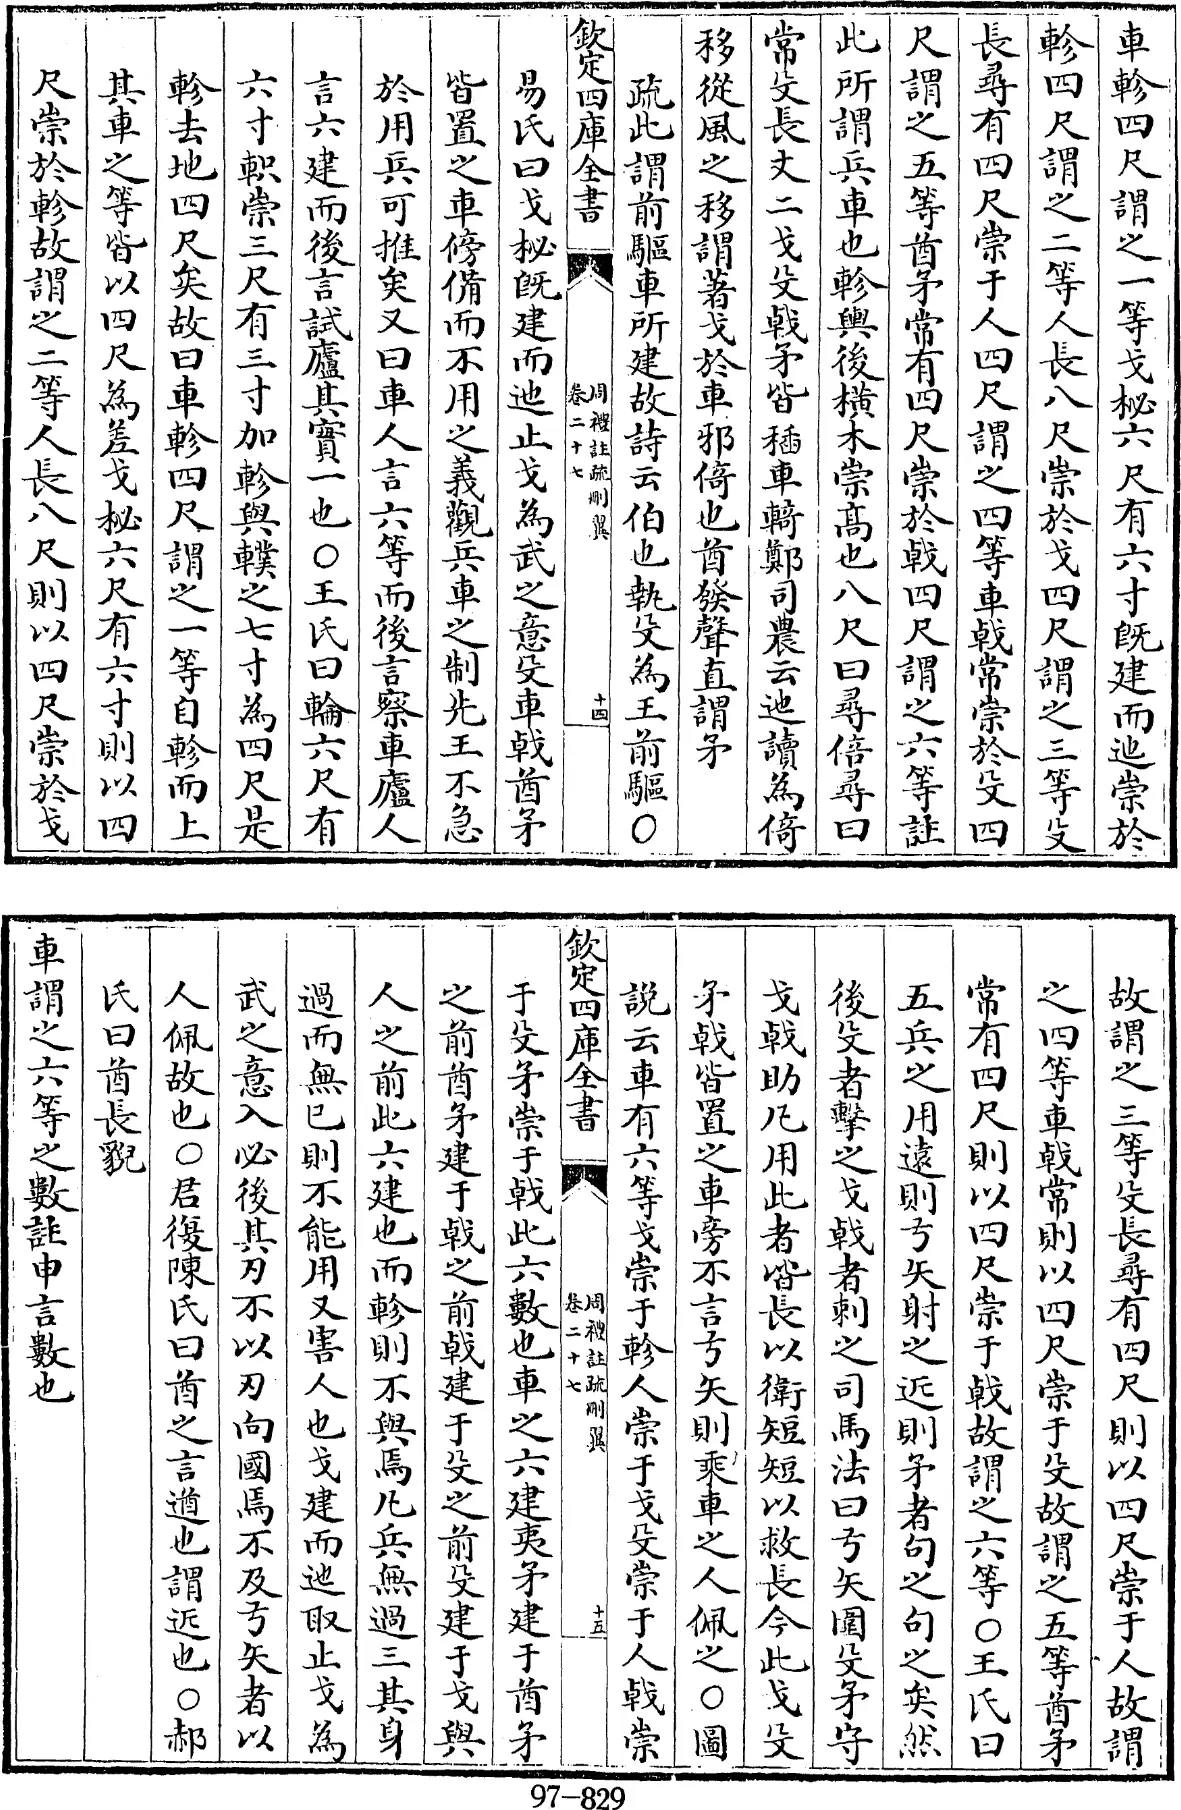 車軫四尺謂之一等戈柲六尺有六寸旣建而迆崇於
軫四尺謂之二等人長八尺崇於戈四尺謂之三等殳
長尋有四尺崇于人四尺謂之四等車戟常崇於殳四
尺謂之五等酋矛常有四尺崇於戟四尺謂之六等註
此所謂兵車也軫輿後橫木崇高也八尺曰尋倍尋曰
常殳長丈二戈殳戟矛皆插車輢鄭司農云迆讀為倚
移從風之移謂著戈於車邪倚也酋發聲直謂矛
疏此謂前驅車所建故詩云伯也執殳為王前驅○
欽定四庫全書
周禮註疏刪翼
卷二十七
十四
易氏曰戈柲旣建而迆止戈為武之意殳車戟酋矛
皆置之車傍備而不用之義觀兵車之制先王不急
於用兵可推矣又曰車人言六等而後言察車廬人
言六建而後言試廬其實一也○王氏曰輪六尺有
六寸軹崇三尺有三寸加軫與轐之七寸為四尺是
軫去地四尺矣故曰車軫四尺謂之一等自軫而上
其車之等皆以四尺為差戈柲六尺有六寸則以四
尺崇於軫故謂之二等人長八尺則以四尺崇於戈
故謂之三等殳長尋有四尺則以四尺崇于人故謂
之四等車戟常則以四尺崇于殳故謂之五等酋矛
常有四尺則以四尺崇于戟故謂之六等○王氏曰
五兵之用遠則弓矢射之近則矛者句之句之矣然
後殳者擊之戈戟者刺之司馬法曰弓矢圍殳矛守
戈戟助凡用此者皆長以衛短短以救長今此戈殳
矛戟皆置之車旁不言弓矢則乘車之人佩之○圖
說云車有六等戈崇于軫人崇于戈殳崇于人戟崇
欽定四庫全書
周禮註疏刪翼
卷二十七
十五
于殳矛崇于戟此六數也車之六建夷矛建于酋矛
之前酋矛建于戟之前戟建于殳之前殳建于戈與
人之前此六建也而軫則不與焉凡兵無過三其身
過而無已則不能用又害人也戈建而迆取止戈為
武之意入必後其刃不以刃向國焉不及弓矢者以
人佩故也○君復陳氏曰酋之言遒也謂近也○郝
氏曰酋長貌
車謂之六等之數註申言數也
97-829